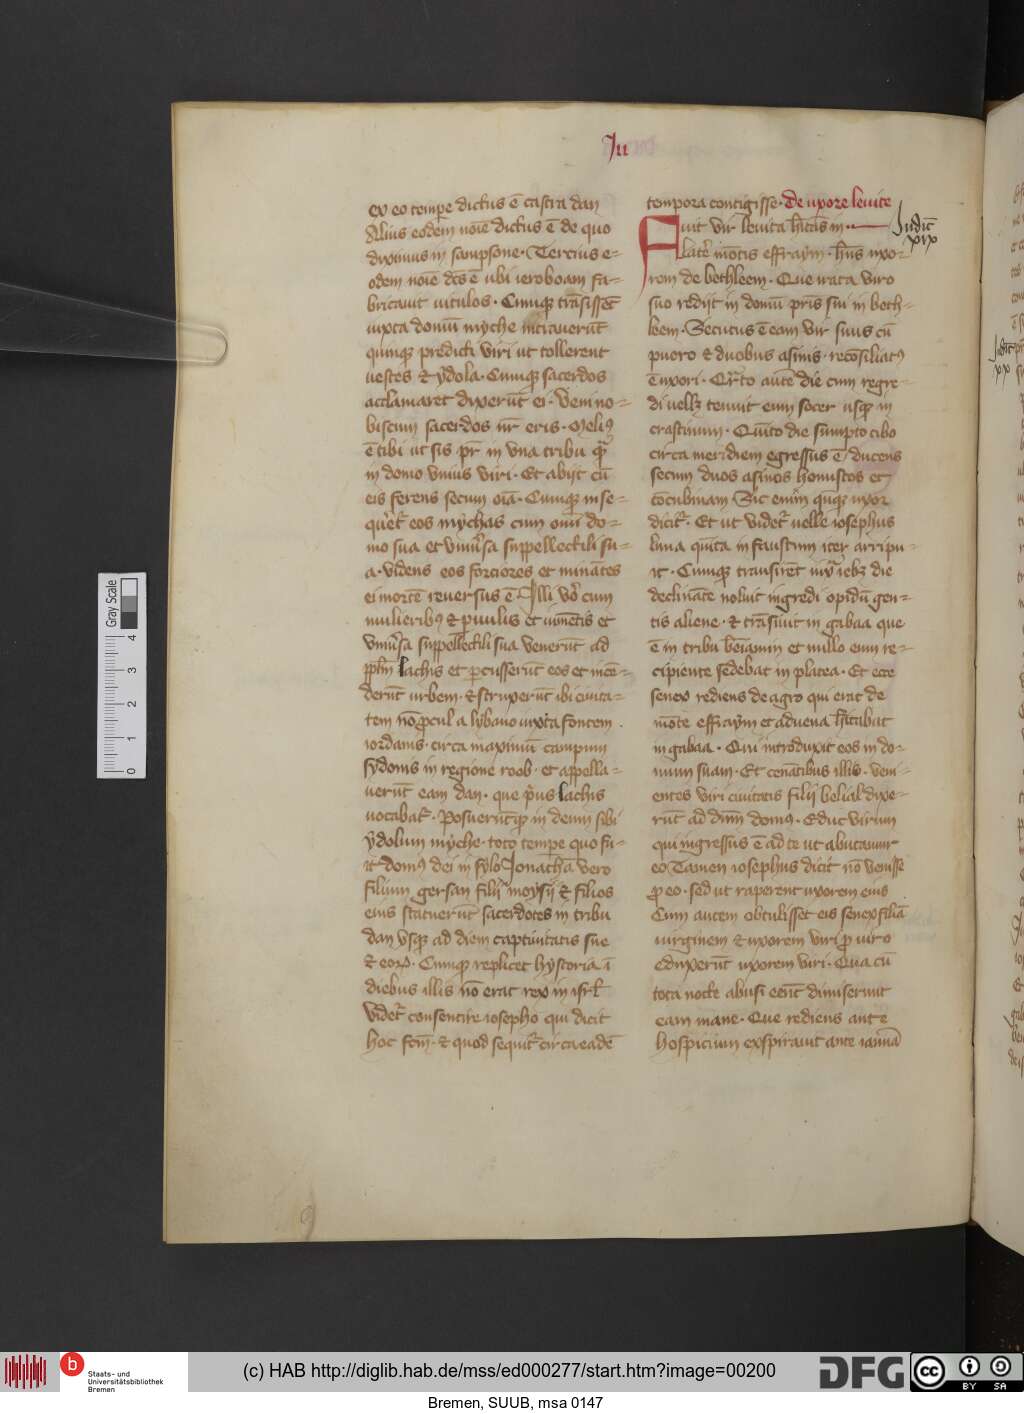 Ju
ex eo tempe dictus ē castra dan
Alius eodem noīe dictus ē de quo
diximus in sampsone · Tercius e-
odem noīe dc̄s ē ubi ieroboam fa-
bricauit uitulos · Cumqꝫ trāsissēt
iuxta domū myche intrauerūt
quinqꝫ predicti viri ut tollerent
uestes et ydola · Cumqꝫ sacerdos
acclamaret dixerūt ei · Veni no-
biscum sacerdos nr̄ eris · Meliꝰ
ē tibi ut sis pr̄ in vna tribu qͣꝫ
in domo vnius viri · Et abijt cū
eis ferens secum oīa · Cumqꝫ inse-
queret̄ eos mychas cum omī do-
mo sua et vniūsa suppellectili su-
a · videns eos forciores et minātes
ei mortē reuersus ē Illi vͦo cum
mulieribꝰ et puulis et iumētis et
vniūsa suppellectili sua venerūt ad
pp̄lm lachis et pcusserūt eos et incē-
derūt urbem · et struxerūt ibi ciuita-
tem nō ꝓcul a lybano iuxta fontem
iordanis · circa maximū campum
sydonis in regione roob · et appella-
uerūt eam dan · que pͥus lachis
uocabat̄ · Posuerūtqꝫ in denm sibi
ydolum myche · toto tempe quo fu-
it domꝰ dei in sylo Jonathā vero
filium gersan filij moysi et filios
eius statuerūt sacerdotes in tribu
dan vsqꝫ ad diem captiuitatis sue
et eoꝝ · Cumqꝫ replicet hystoria ī
diebus illis nō erat rex in isrl̄
videt̄ consentire iosepho qui dicit
hoc fcm̄ · et quod sequit̄ circa eadē
tempora contigisse · De vxore leuite
Fuit vir leuita hītās in
Judic̄
xix
latē mōtis effraym · hn̄s uxo-
rem de bethleem · Que irata viro
suo redijt in domū pr̄is sui in beth-
leem · Secutus ē eam vir suus cū
puero et duobus asinis · recōsiliatꝰ
ē uxori · Qr̄to autē die cum regre-
di vellꝫ tenuit eum socer usqꝫ in
crastinum · Quīto die sumpto cibo
circa meridiem egressus ē ducens
secum duos asinos honustos et
cōcubinam Sic enim quqꝫ uxor
dicit̄ · Et ut videt̄ uelle iosephus
luna quīta infaustum iter arripu-
it · Cumqꝫ transirēt iux̄ iebꝫ die
declināte noluit ingredi opidū gen-
tis aliene · et trāsiuit in gabaa que
ē in tribu bēiamin et nullo eum re-
cipiente sedebat in platea · Et ecce
senex rediens de agro qui erat de
mōte effraym et aduena hītabat
in gabaa · Qui introduxit eos in do-
mum suam · Et cenātibus illis · veni-
entes viri ciuitatis filij belial dixe-
rūt ad dnm̄ domꝰ · Educ virum
qui ingressus ē ad te ut abutamur
eo Tamen iosephus dicit nō venisse
ꝓ eo · sed ut raperent uxorem eius
Cum autem obtulisset eis senex filiā
uirginem et uxorem viri ꝓ uiro
Eduxerūt uxorem viri · Qua cū
tota nocte abusi eēnt dimiserunt
eam mane · Que rediens ante
hospicium exspirauit ante ianuā
Gray Scale
4
3
2
1
0
Staats- und
Universitätsbibliothek
Bremen
(c) HAB http://diglib.hab.de/mss/ed000277/start.htm?image=00200
DFG
cc
BY
SA
Bremen, SUUB, msa 0147